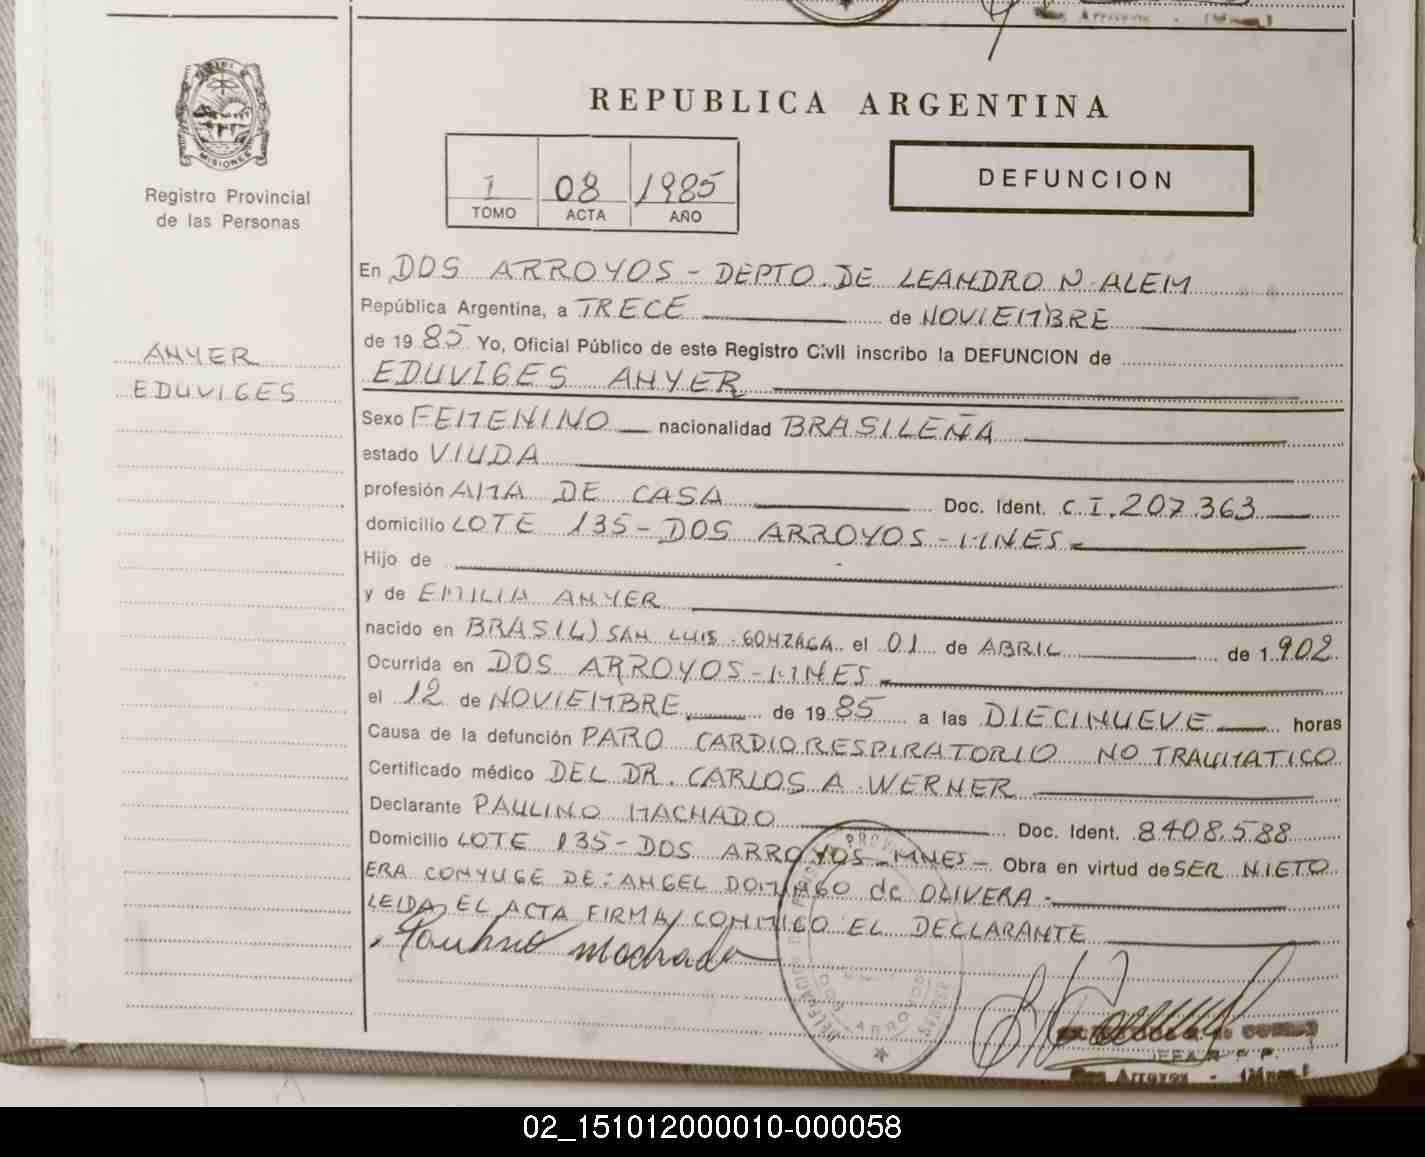 REPUBLICA ARGENTINA
MISIONES
Registro Provincial
de las Personas
1 08 1985
TOMO ACTA AÑO
DEFUNCION
ANYER
EDUVIGES
En DOS ARROYOS - DEPTO. DE LEANDRO N. ALEM
República Argentina, a TRECE de NOVIEMBRE
de 19 85 Yo, Oficial Público de este Registro Civil inscribo la DEFUNCION de
EDUVIGES ANYER
Sexo FEMENINO nacionalidad BRASILEÑA
estado VIUDA
profesión AMA DE CASA Doc. Ident. C.I. 207.363
domicilio LOTE 135 - DOS ARROYOS - MNES -
Hijo de
y de EMILIA ANYER
nacido en BRASIL) SAN LUIS - GONZAGA el 01 de ABRIL de 1.902
Ocurrida en DOS ARROYOS - MNES -
el 12 de NOVIEMBRE de 19 85 a las DIECINUEVE horas
Causa de la defunción PARO CARDIORESPIRATORIO NO TRAUMATICO
Certificado médico DEL DR. CARLOS A. WERNER
Declarante PAULINO MACHADO Doc. Ident. 8.408.588
Domicilio LOTE 135 - DOS ARROYOS - MNES - Obra en virtud de SER NIETO
ERA CONYUGE DE: ANGEL DOMINGO de OLIVERA -
LEIDA EL ACTA FIRMA CONMIGO EL DECLARANTE
Paulino Machado
DOS ARROYOS
Dos Arroyos - (Mnes.)
02_151012000010-000058